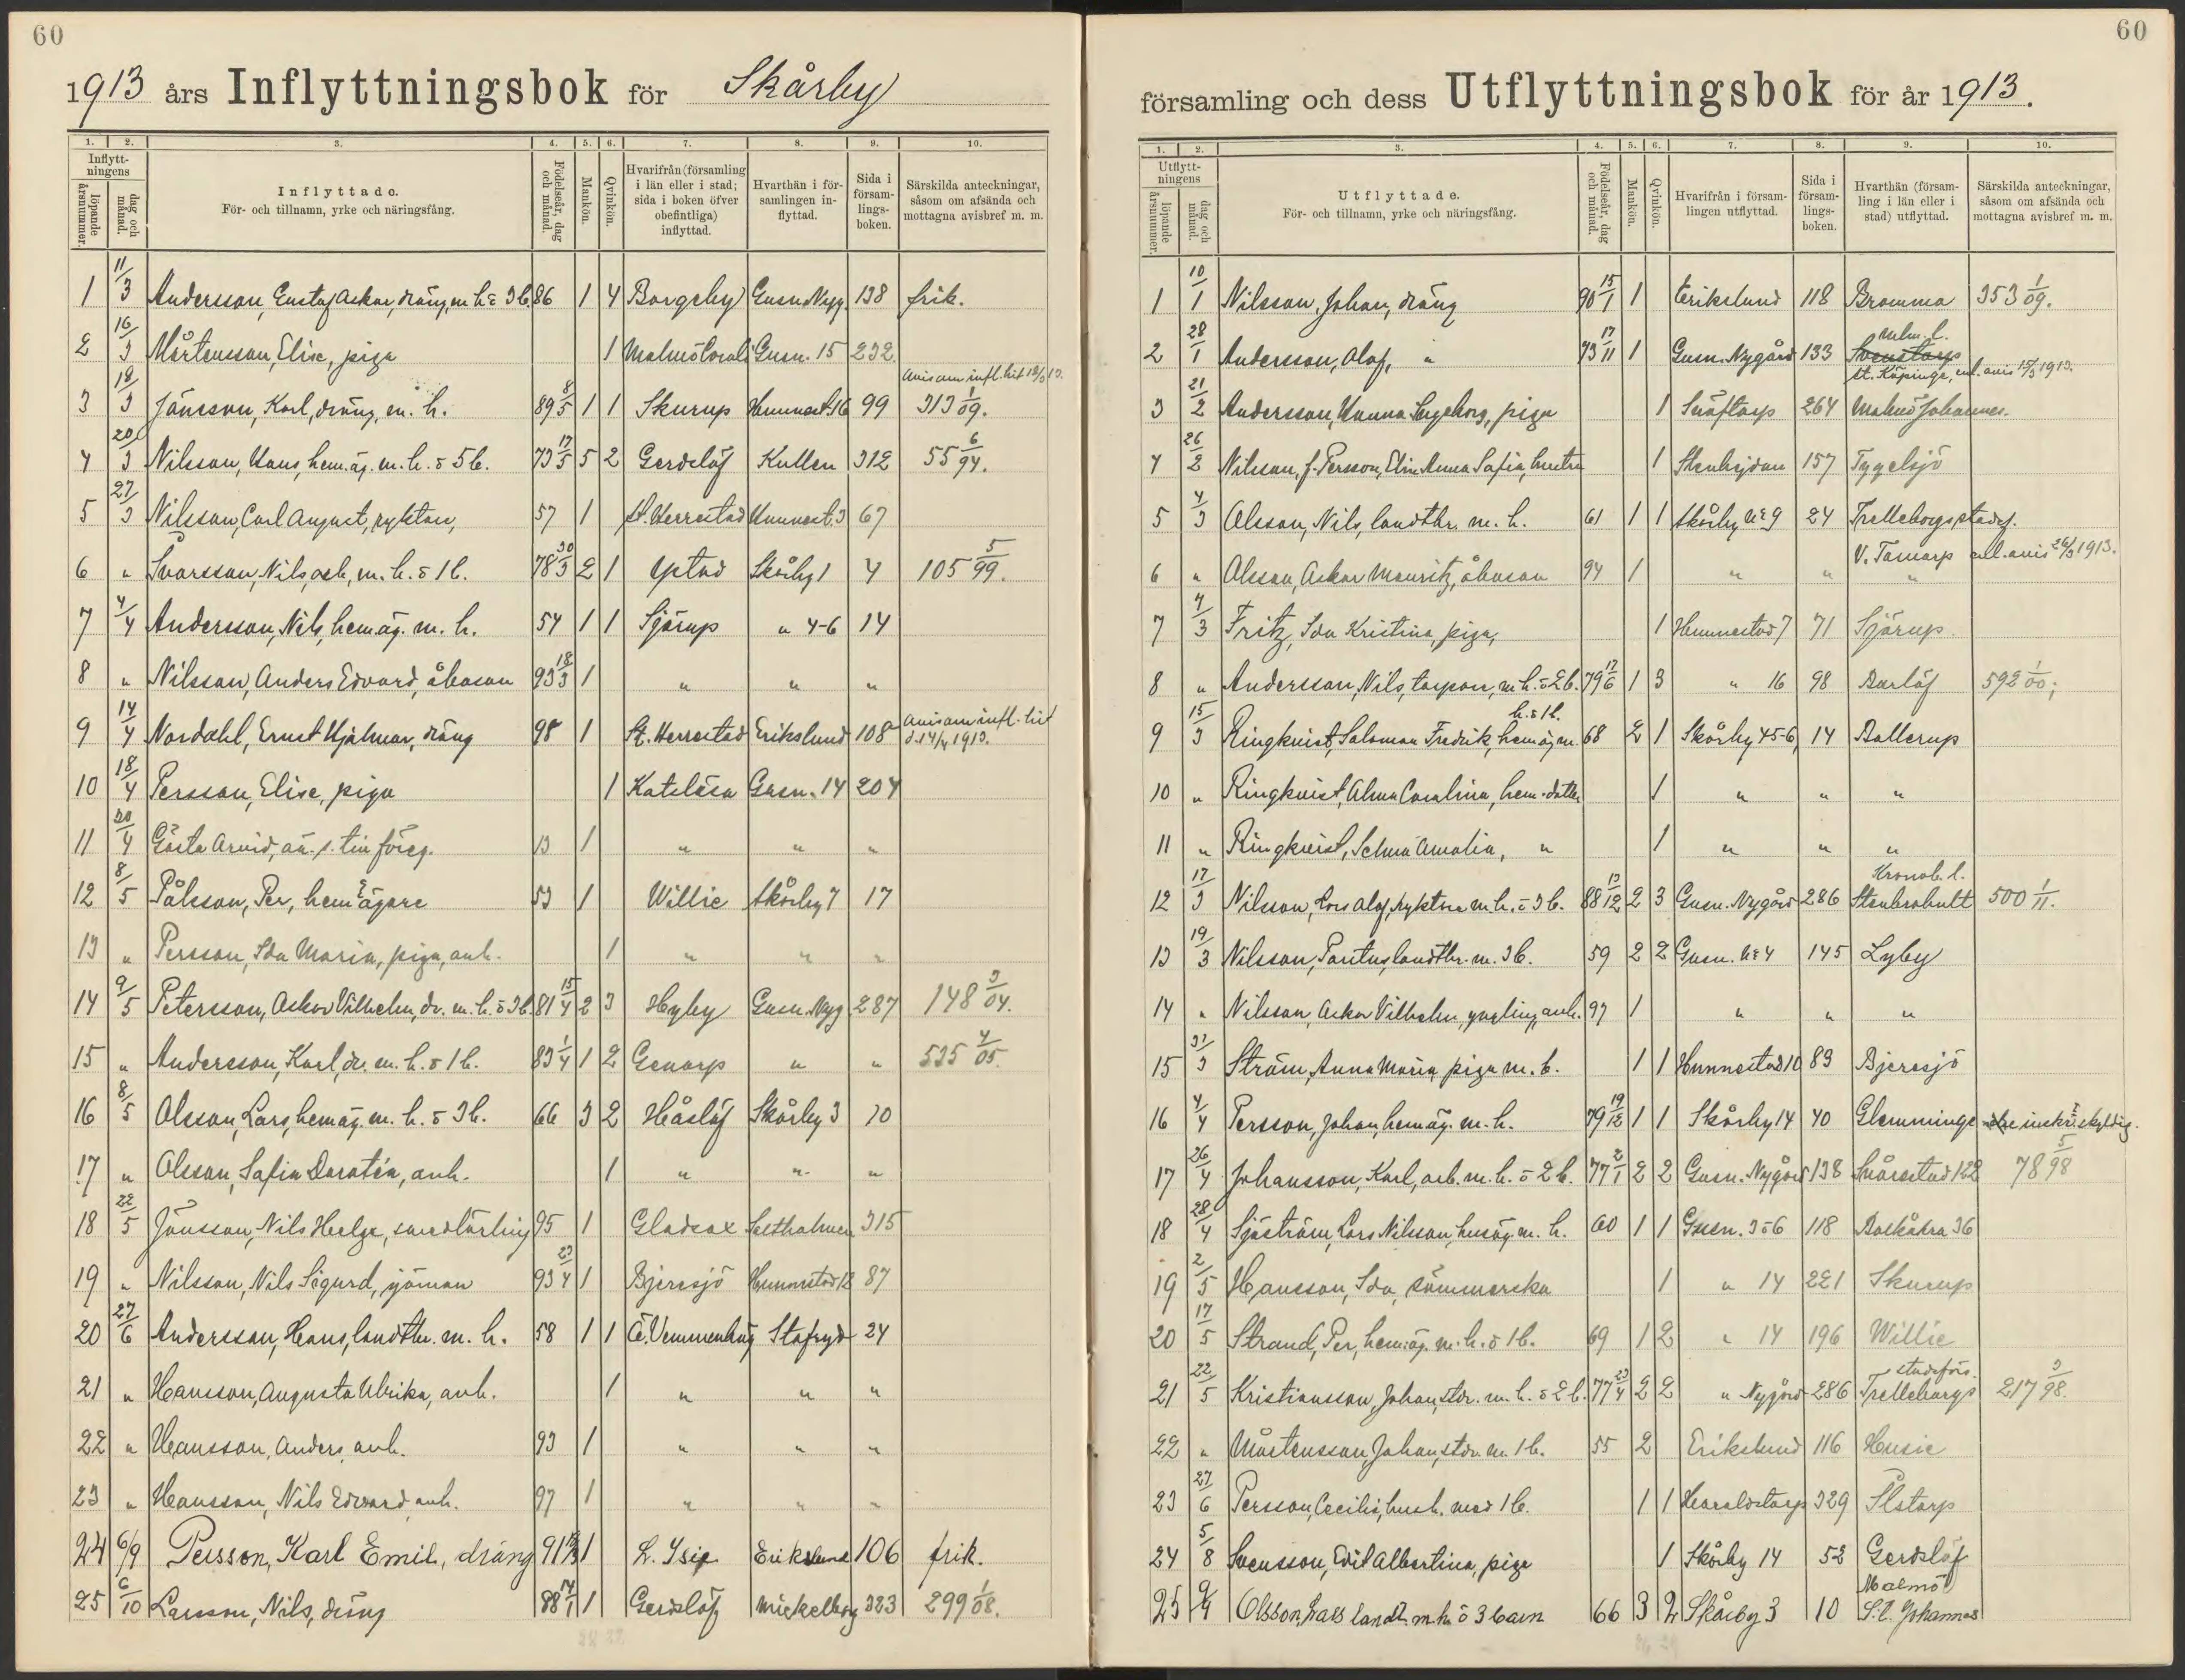 60
1913 års Inflyttningsbok för Skårby
1. 2. 3. 4. 5. 6. 7. 8. 9. 10.
Inflyttningens
löpande årsnummer. dag och månad. Inflyttade. För- och tillnamn, yrke och näringsfång. Födelseår, dag och månad. Mankön. Qvinkön. Hvarifrån (församling i län eller i stad; sida i boken öfver obefintliga) inflyttad. Hvarthän i församlingen inflyttad. Sida i församlingsboken. Särskilda anteckningar, såsom om afsända och mottagna avisbref m. m.
1 11/3 Andersson, Gustaf Oskar, dräng m. h. o 3 b. 86 1 4 Borgeby Gusn. Nyg. 138 frik.
2 16/3 Mårtensson, Elise, piga 1 Malmö Caroli Gusn. 15 232
3 18/3 Jönsson, Karl, dräng, m. h. 89 8/5 1 1 Skurup Hunnest. 16 99 avis om infl. hit 18/3 13. 313 1/09.
4 20/3 Nilsson, Hans, hem.äg. m. h. o 5 b. 73 17/5 5 2 Gerdslöf Kullen 312 55 6/94.
5 27/3 Nilsson, Carl August, ryktare, 57 1 St. Herrestad Hunnest. 3 67
6 " Svarsson, Nils, arb. m. h. o 1 b. 78 30/3 2 1 Ystad Skårby 1 4 105 5/99.
7 4/4 Andersson, Nils, hem.äg. m. h. 54 1 1 Sjörup " 4-6 14
8 " Nilsson, Anders Edvard, åboson 93 18/3 1 " " "
9 14/4 Nordahl, Ernst Hjalmar, dräng 98 1 St. Herrestad Erikslund 108 avis om infl. hit d. 14/4 1913.
10 18/4 Persson, Elise, piga 1 Katslösa Gusn. 14 204
11 20/4 Gösta Arvid, oä. s. till föreg. 13 1 " " "
12 8/5 Pålsson, Per, hem. ägare 53 1 Willie Skårby 7 17
13 " Persson, Ida Maria, piga, anh. 1 " " "
14 9/5 Petersson, Oskar Vilhelm, dr. m. h. o 3 b. 81 15/4 2 3 Hyby Gusn. Nyg 287 148 3/04.
15 " Andersson, Karl, dr. m. h. o 1 b. 83 1/4 1 2 Genarp " " 535 4/05.
16 8/5 Olsson, Lars, hemäg. m. h. o 3 b. 66 3 2 Håslöf Skårby 3 10
17 " Olsson, Sofia Dorotéa, anh. 1 " " "
18 22/5 Jönsson, Nils Helge, smedlärling 95 1 Gladsax Seltholmen 315
19 " Nilsson, Nils Sigurd, sjöman 93 23/4 1 Bjeresjö Hunnestad 12 87
20 27/6 Andersson, Hans, landtbr. m. h. 58 1 1 Ö. Vemmenhög Stafryd 24
21 " Hansson, Augusta Ulrika, anh. 1 " " "
22 " Hansson, Anders, anh. 93 1 " " "
23 " Hansson, Nils Edvard, anh. 97 1 " " "
24 6/9 Persson, Karl Emil, dräng 91 1 L. Isie Erikslund 106 frik.
25 6/10 Larsson, Nils, dräng 88 14/1 1 Gerdslöf Mickelborg 323 299 1/08.
60
församling och dess Utflyttningsbok för år 1913.
1. 2. 3. 4. 5. 6. 7. 8. 9. 10.
Utflyttningens
löpande årsnummer. dag och månad. Utflyttade. För- och tillnamn, yrke och näringsfång. Födelseår, dag och månad. Mankön. Qvinkön. Hvarifrån i församlingen utflyttad. Sida i församlingsboken. Hvarthän (församling i län eller i stad) utflyttad. Särskilda anteckningar, såsom om afsända och mottagna avisbref m. m.
1 10/1 Nilsson, Johan, dräng 90 15/1 1 Erikslund 118 Bromma 353 1/09.
2 28/1 Andersson, Olof, " 73 17/11 1 Gusn. Nygård 133 Malm. l. Svenstorp St. Köpinge, enl. avis 15/3 1913.
3 21/2 Andersson, Hanna Ingeborg, piga 1 Snöftorp 264 Malmö Johannes.
4 26/2 Nilsson, f. Persson, Elin Anna Sofia, hustru 1 Stenhejdan 157 Tygelsjö
5 4/3 Olsson, Nils, landtbr. m. h. 61 1 1 Skårby № 9 24 Trelleborgs stadsf.
6 " Olsson, Oskar Mauritz, åboson 94 1 " " V. Tomarp enl. avis 26/3 1913. "
7 4/3 Fritz, Ida Kristina, piga, 1 Hunnestad 7 71 Sjörup
8 " Andersson, Nils, torpare, m. h. o 2 b. 79 17/6 1 3 " 16 98 Burlöf 592 1/00;
9 15/3 Ringkvist, Salomon Fredrik, hemäg m. h. o 1 b. 68 2 1 Skårby 4 5-6, 14 Bollerup
10 " Ringkvist, Alma Carolina, hem. dotter 1 " " "
11 " Ringkvist, Selma Amalia, " 1 " " "
12 17/3 Nilsson, Lars Olof, ryktare m. h. o 3 b. 88 13/12 2 3 Gusn. Nygård 286 Kronob. l. Stenbrohult 500 1/11.
13 19/3 Nilsson, Pontus, landtbr. m. 3 b. 59 2 2 Gusn. № 4 145 Lyby
14 " Nilsson, Oskar Vilhelm, yngling, anh. 97 1 " " "
15 31/3 Ström, Anna Maria, piga m. b. 1 1 Hunnestad 10 83 Bjeresjö
16 4/4 Persson, Johan, hemäg. m. h. 79 19/12 1 1 Skårby 14 40 Glemminge icke inskr. skyldig.
17 26/4 Johansson, Karl, arb. m. h. o 2 b. 77 2/1 2 2 Gusn. Nygård 138 Snårestad 122 78 5/98
18 28/4 Sjöström, Lars Nilsson, husäg. m. h. 60 1 1 Gusn. 3 o 6 118 Balkåkra 36
19 2/5 Hansson, Ida, sömmerska 1 " 14 221 Skurup
20 17/5 Strand, Per, hem.äg. m. h. o 1 b. 69 1 2 " 14 196 Willie
21 22/5 Kristiansson, Johan, stdr. m. h. o 2 b. 77 23/4 2 2 " Nygård 286 Trelleborgs stadsförs. 217 3/98.
22 " Mårtensson, Johan, stdr. m. 1 b. 55 2 Erikslund 116 Husie
23 27/6 Persson, Cecilia, hush. med 1 b. 1 1 Haraldstorp 329 Ilstorp
24 5/8 Svensson, Edit Albertina, piga 1 Skårby 14 52 Gerdslöf
25 9/9 Olsson, Lars landtb. m. h. o 3 barn 66 3 2 Skårby 3 10 Malmö S:t Johannes